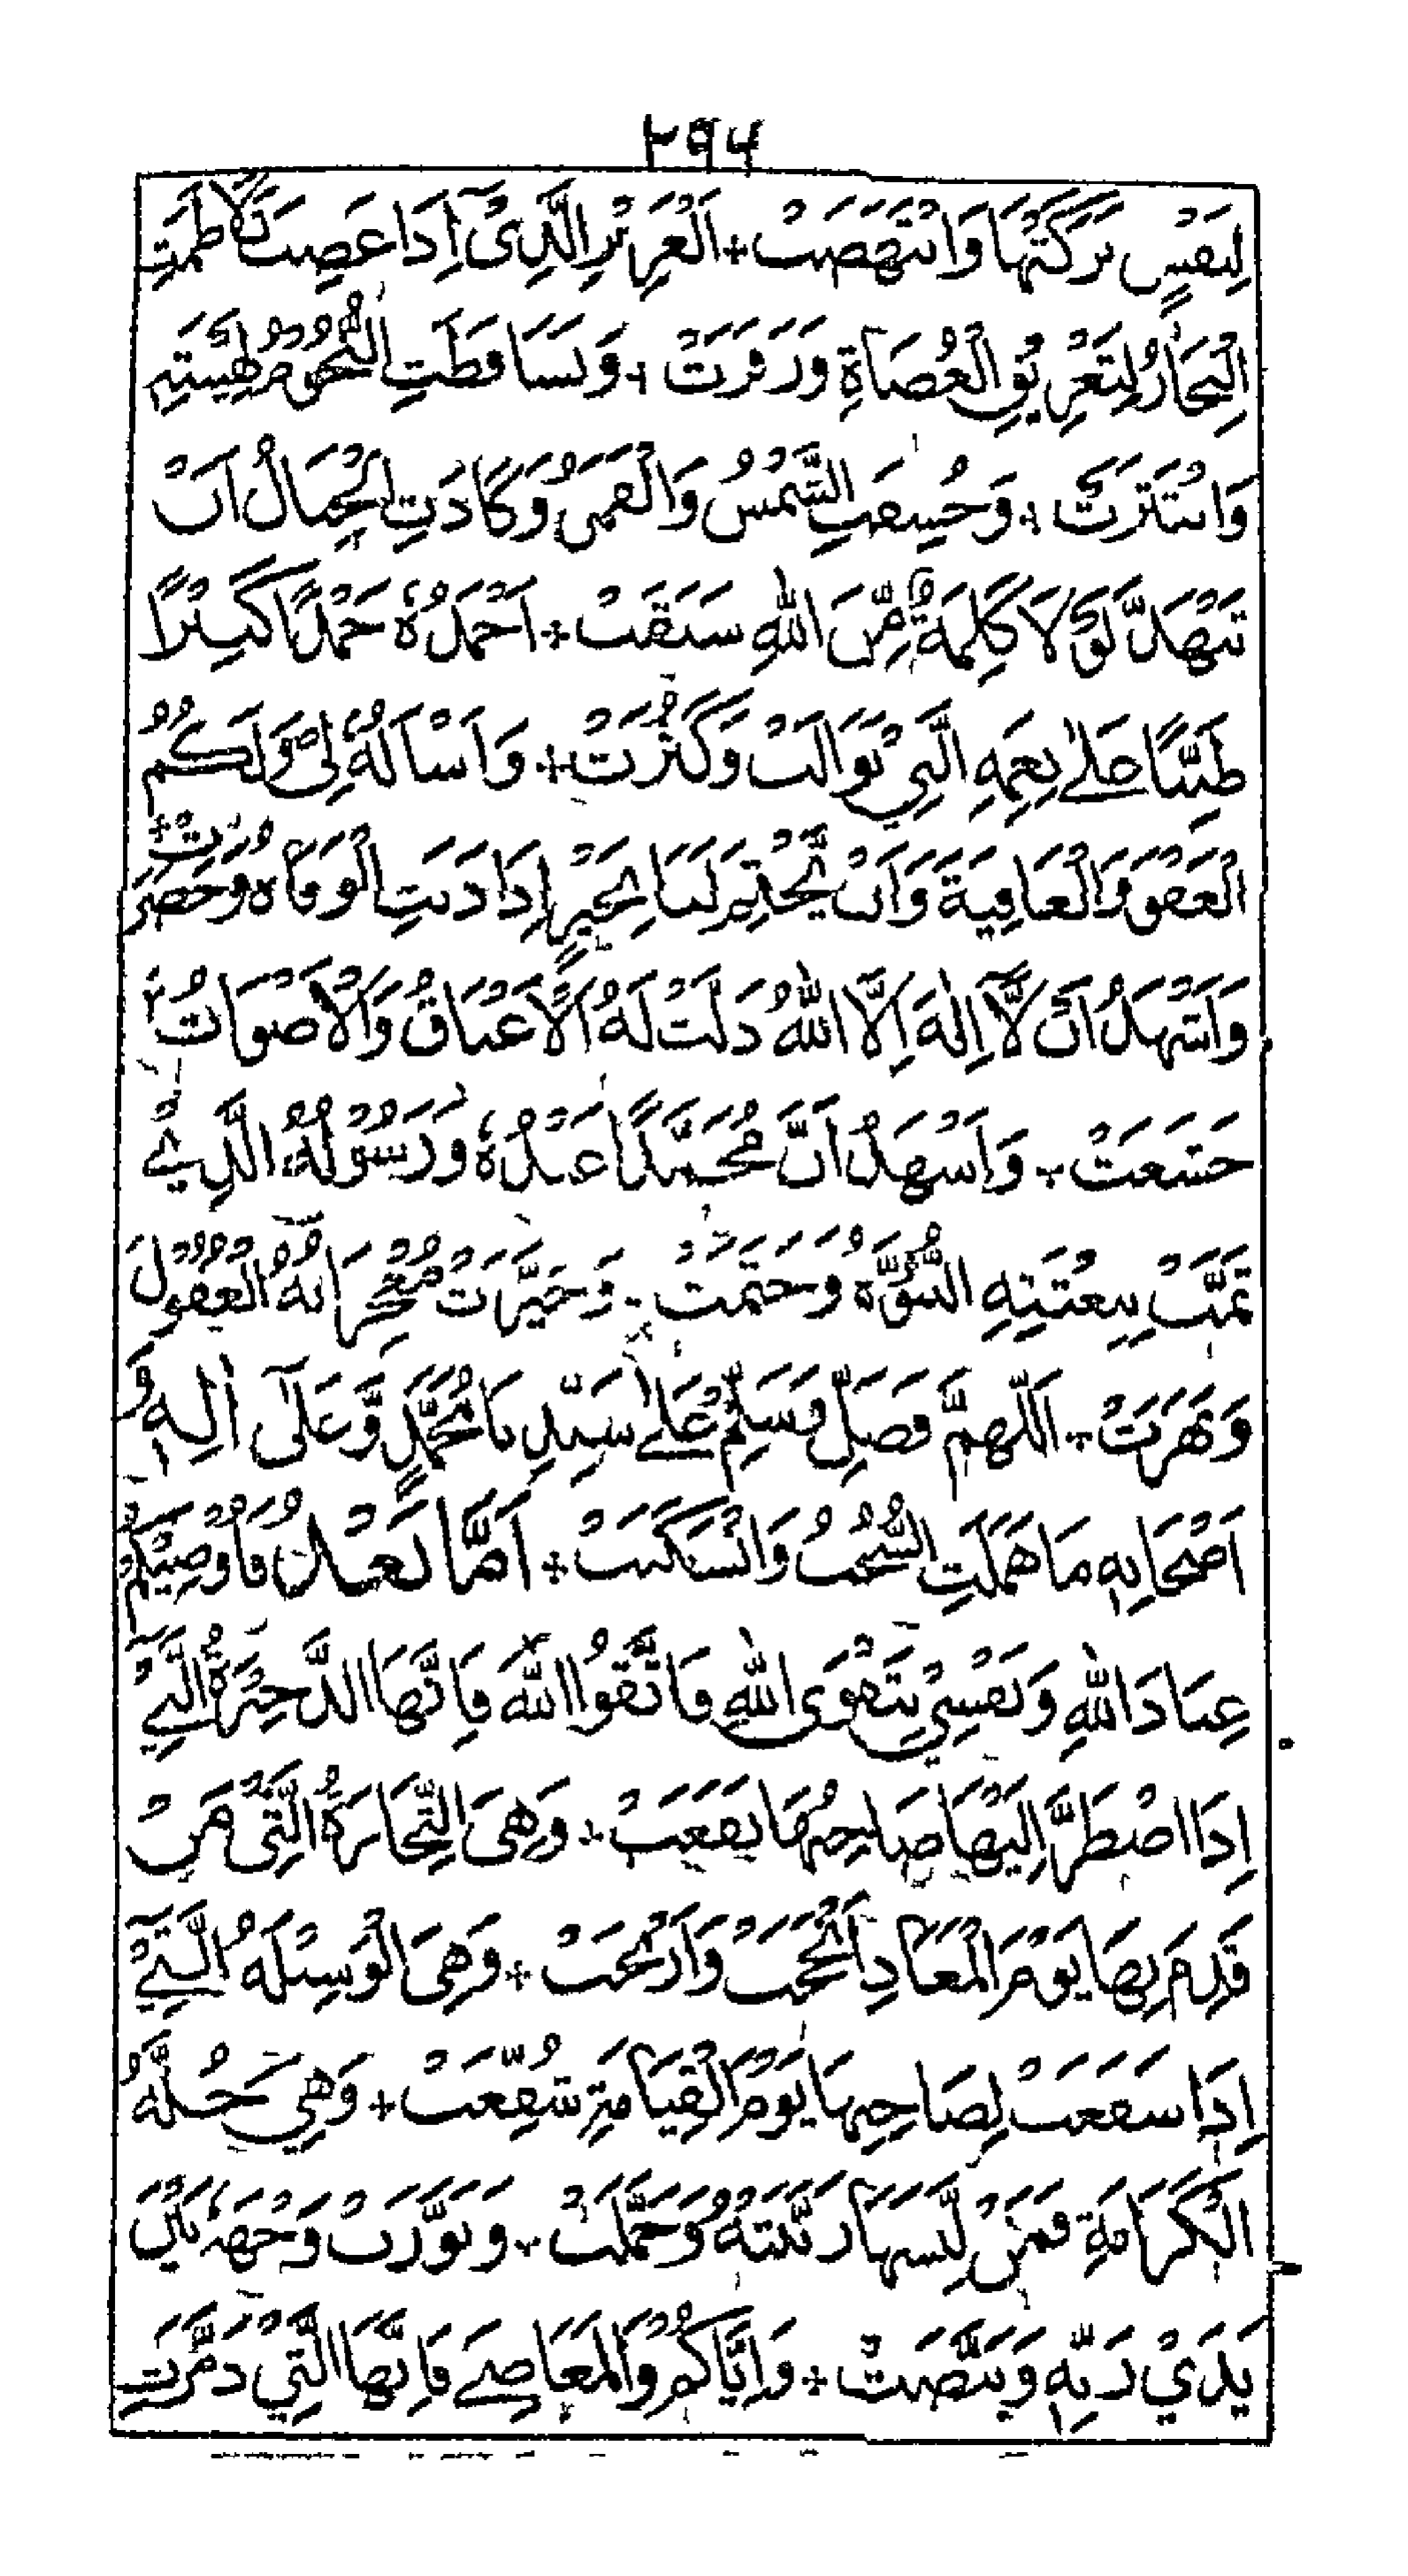 ٢٩٤
لِنَفْسٍ بَرَكَتُهَا وَانْتَهَضَتْ + اَلْعَزِيْزِ الَّذِىْ اِذَا عَصِتَ تَلَاطَمَتِ
الْبِحَارُ لِتَغْرِيْقِ الْعُصَاةِ وَزَفَرَتْ + وَتَسَاقَطَتِ النُّجُوْمُ لِهَيْبَتِهٖ
وَانْتَثَرَتْ + وَخُسِفَتِ الشَّمْسُ وَالْقَمَرُ وَكَادَتِ الْجِبَالُ اَنْ
تَنْهَدَّ لَوْ لَا كَلِمَةٌ مِّنَ اللّٰهِ سَبَقَتْ + اَحْمَدُهٗ حَمْدًا كَثِيْرًا
طَيِّبًا عَلٰى نِعَمِهِ الَّتِيْ تَوَالَتْ وَكَثُرَتْ + وَاَسْاَلُهٗ لِىْ وَلَكُمُ
الْعَفْوَ وَالْعَافِيَةَ وَاَنْ يَّخْتِمَ لَنَا بِخَيْرٍ اِذَا دَنَتِ الْوَفَاةُ وَحَضَرَتْ +
وَاَشْهَدُ اَنْ لَّا اِلٰهَ اِلَّا اللّٰهُ ذَلَّتْ لَهُ الْاَعْنَاقُ وَالْاَصْوَاتُ لَهٗ
خَشَعَتْ + وَاَشْهَدُ اَنَّ مُحَمَّدًا عَبْدُهٗ وَرَسُوْلُهُ الَّذِيْ
تَمَّتْ بِبِعْثَتِهِ النُّبُوَّةُ وَخَتَمَتْ + وَحَيَّرَتْ مُعْجِزَاتُهُ الْعُقُوْلَ
وَبَهَرَتْ + اَللّٰهُمَّ فَصَلِّ وَسَلِّمْ عَلٰى سَيِّدِنَا مُحَمَّدٍ وَّعَلٰى اٰلِهٖ وَ
اَصْحَابِهٖ مَا هَمَلَتِ السُّحُبُ وَانْسَكَبَتْ + اَمَّا بَعْدُ فَاُوْصِيْكُمْ
عِبَادَ اللّٰهِ وَنَفْسِيْ بِتَقْوَى اللّٰهِ فَاتَّقُوا اللّٰهَ فَاِنَّهَا الذَّخِيْرَةُ الَّتِيْ
اِذَا اضْطَرَّ اِلَيْهَا صَاحِبُهَا نَفَعَتْ + وَهِىَ التِّجَارَةُ الَّتِىْ مَنْ
قَدِمَ بِهَا يَوْمَ الْمَعَادِ اَنْجَحَتْ وَاَرْبَحَتْ + وَهِىَ الْوَسِيْلَةُ الَّتِيْ
اِذَا شَفَعَتْ لِصَاحِبِهَا يَوْمَ الْقِيَامَةِ شُفِّعَتْ + وَهِيَ حُلَّةُ
الْكَرَامَةِ فَمَنْ لَّبِسَهَا زَيَّنَتْهُ وَجَمَّلَتْ + وَنَوَّرَتْ وَجْهَهٗ بَيْنَ
يَدَيْ رَبِّهٖ وَبَيَّضَتْ + وَاِيَّاكُمْ وَالْمَعَاصِيَ فَاِنَّهَا الَّتِيْ دَمَّرَتِ